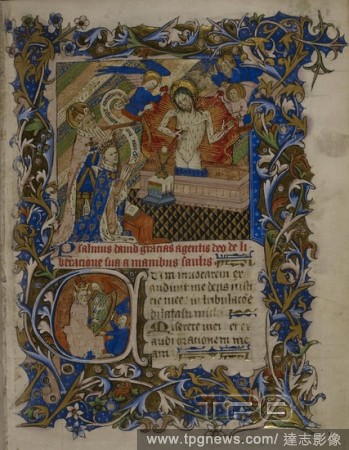 Psalmus dauid gracias agentis deo de li
beracione sua a manibus saulis
Cum inuocarem ex
audiuit me deus iusti
cie mee in tribulacōe
dilatasti michi
Miserere mei et ex
audi orationem me
am
TPG
www.tpgnews.com/ 達志影像